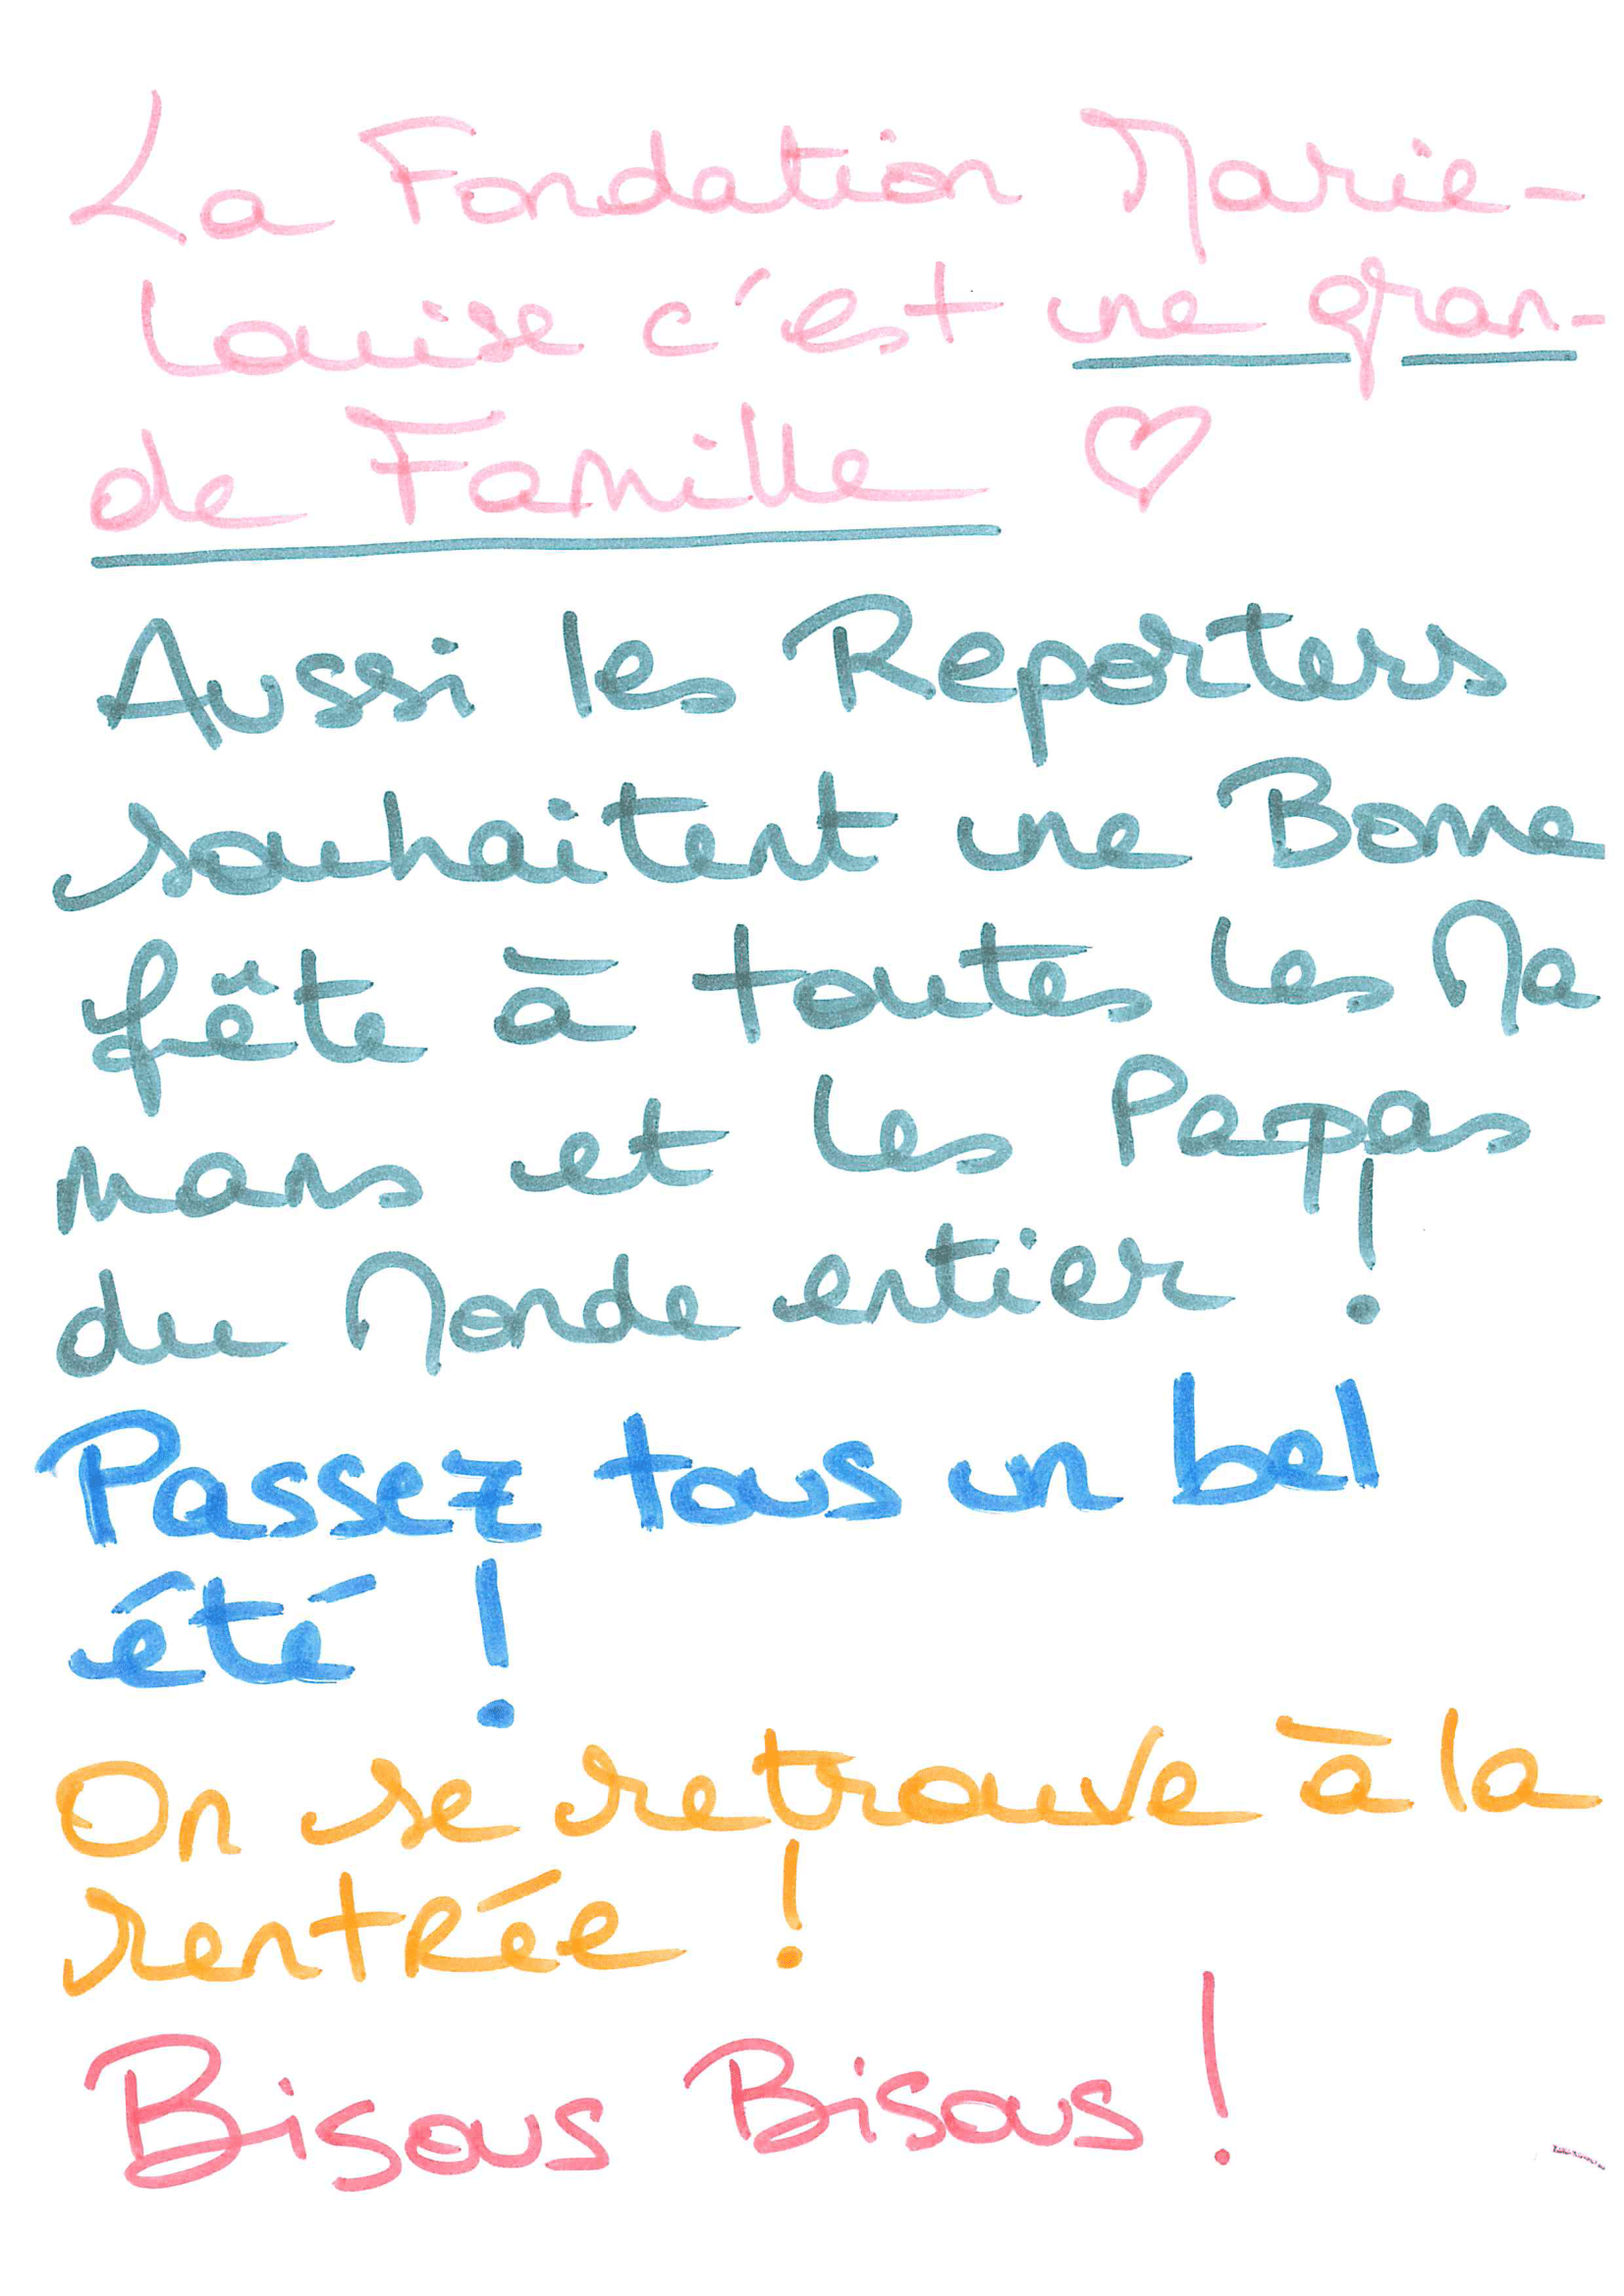 La Fondation Marie-
Louise c'est une gran-
de Famille ♡
Aussi les Reporters
souhaitent une Bonne
fête à toutes les Ma
mans et les Papas
du Monde entier !
Passez tous un bel
été !
On se retrouve à la
rentrée !
Bisous Bisous !